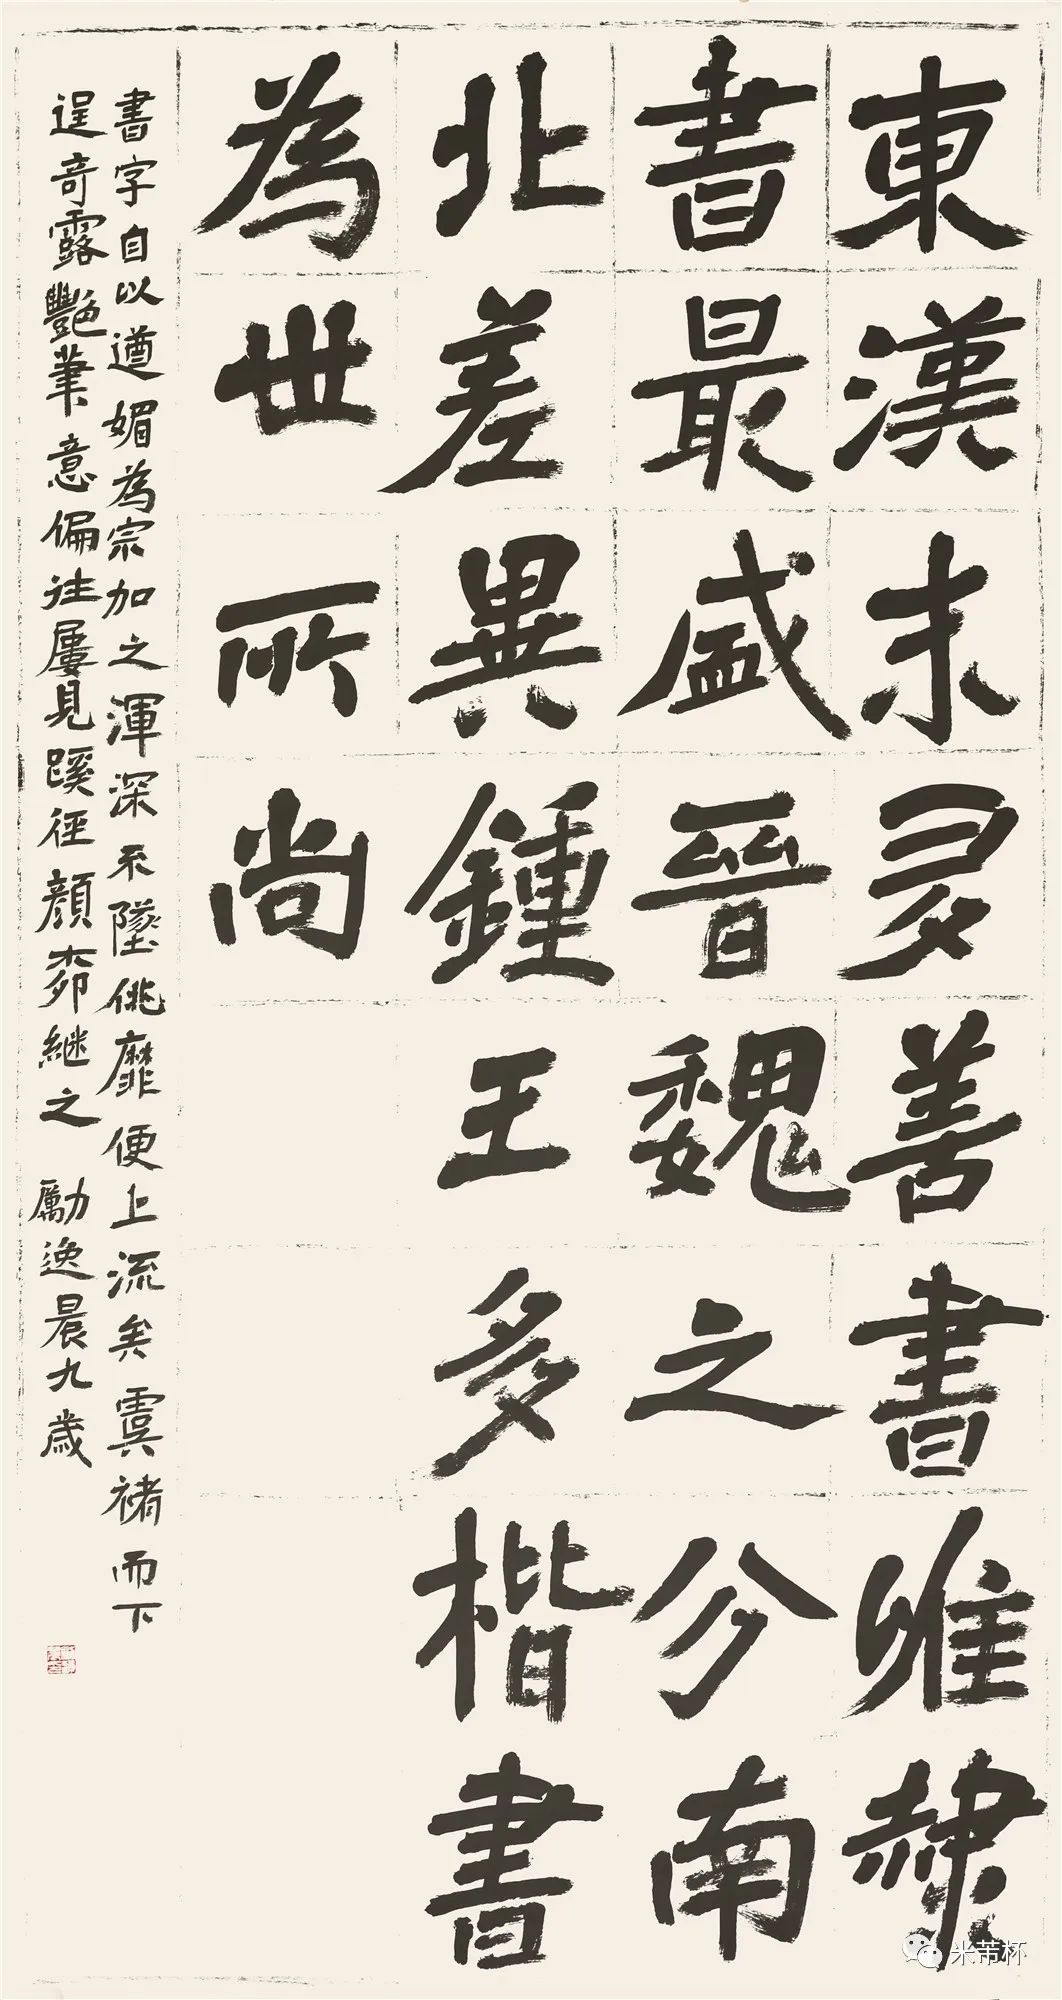 東漢末多善書惟隸
書最盛晉魏之分南
北差異鍾王多楷書
為世所尚
書字自以遒媚為宗加之渾深不墜佻靡便上流矣虞褚而下
逞奇露艷筆意偏往屢見蹊徑顏柳継之 勵逸晨九歲
米芾杯